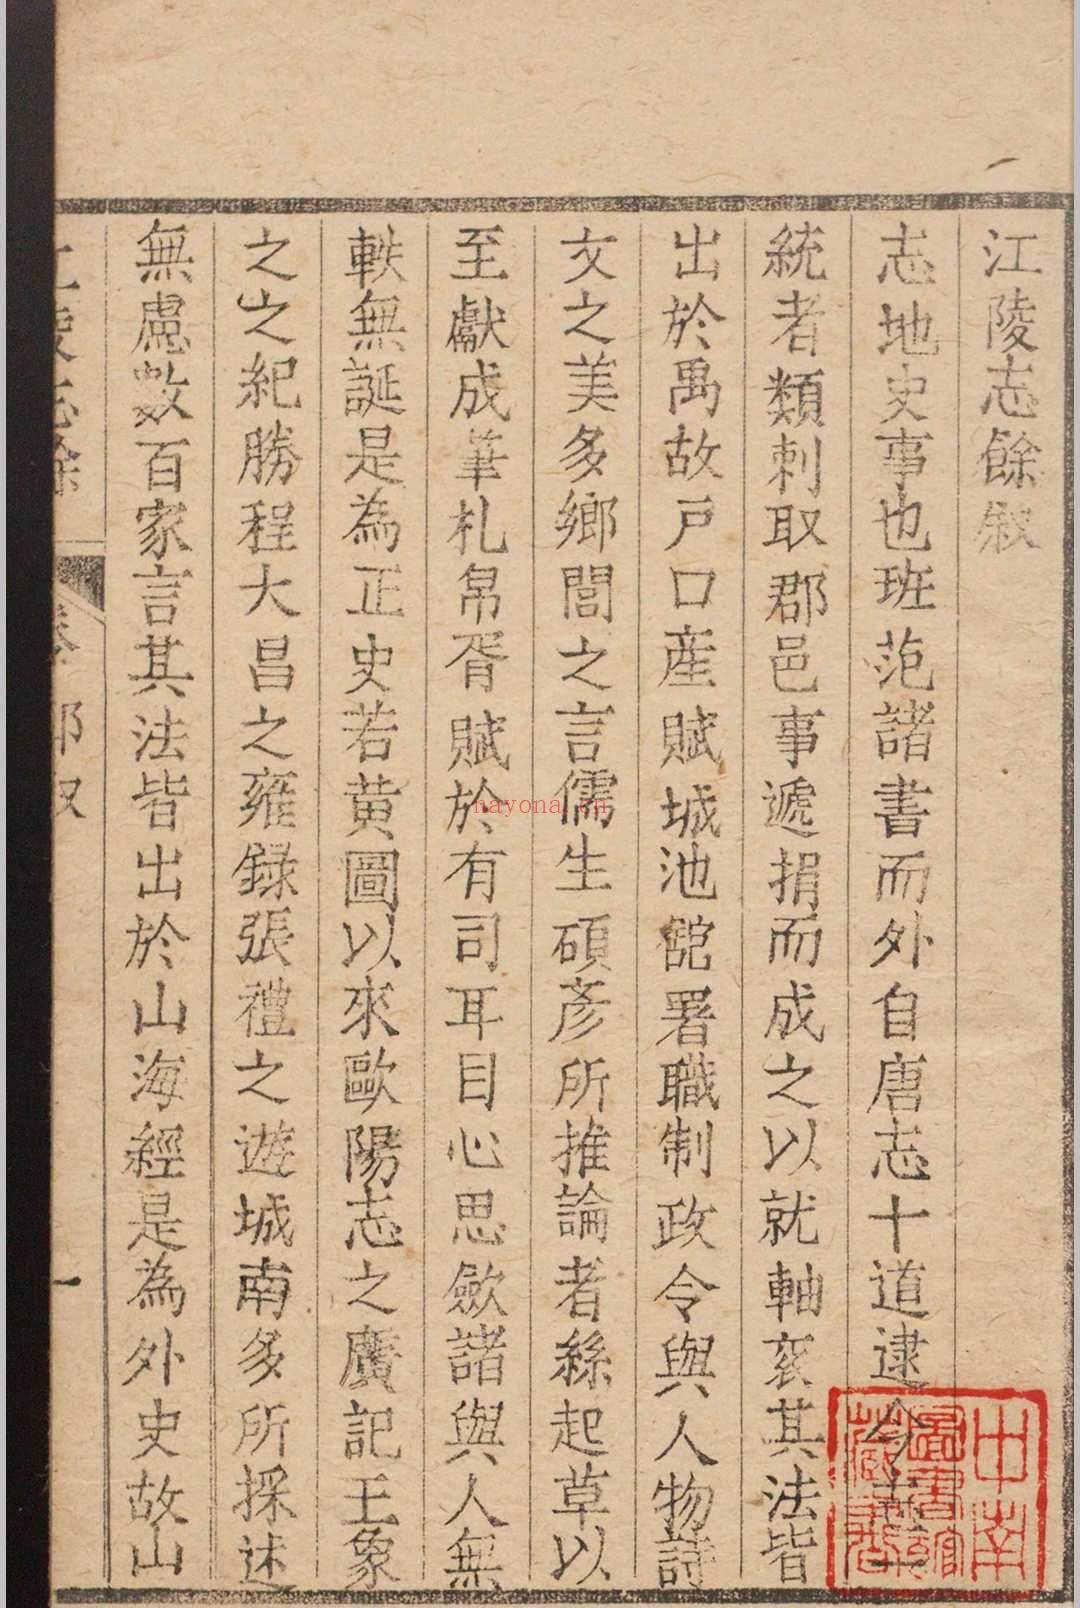 江陵志餘叙
志地史事也班范諸書而外自唐志十道逮今
統者類刺取郡邑事遞捐而成之以就軸衮其法皆
出於禹故戸口產賦城池館署職制政令與人物詩
文之美多鄉閭之言儒生碩彥所推論者繇起草以
至獻成筆札帛胥賦於有司耳目心思歛諸與人無
軼無誕是為正史若黄圖以來歐陽志之廣記王象
之之紀勝程大昌之雍録張禮之遊城南多所採述
無慮數百家言其法皆出於山海經是為外史故山
江陵志餘
叙
一
中南
圖書館
藏書
nayona.cn